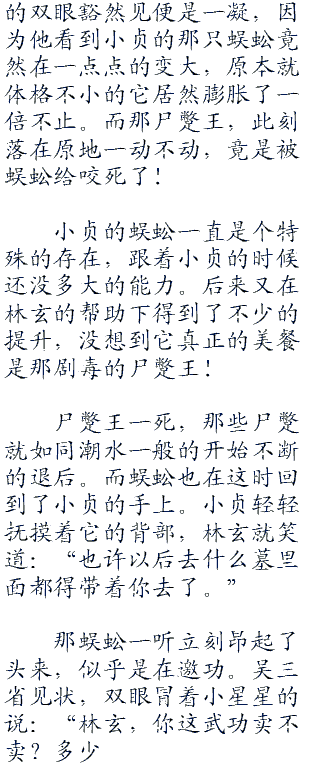 的双眼豁然见便是一凝，因
为他看到小贞的那只蜈蚣竟
然在一点点的变大，原本就
体格不小的它居然膨胀了一
倍不止。而那尸蹩王，此刻
落在原地一动不动，竟是被
蜈蚣给咬死了！
小贞的蜈蚣一直是个特
殊的存在，跟着小贞的时候
还没多大的能力。后来又在
林玄的帮助下得到了不少的
提升，没想到它真正的美餐
是那剧毒的尸蹩王！
尸蹩王一死，那些尸蹩
就如同潮水一般的开始不断
的退后。而蜈蚣也在这时回
到了小贞的手上。小贞轻轻
抚摸着它的背部，林玄就笑
道：“也许以后去什么墓里
面都得带着你去了。”
那蜈蚣一听立刻昂起了
头来，似乎是在邀功。吴三
省见状，双眼冒着小星星的
说：“林玄，你这武功卖不
卖？多少